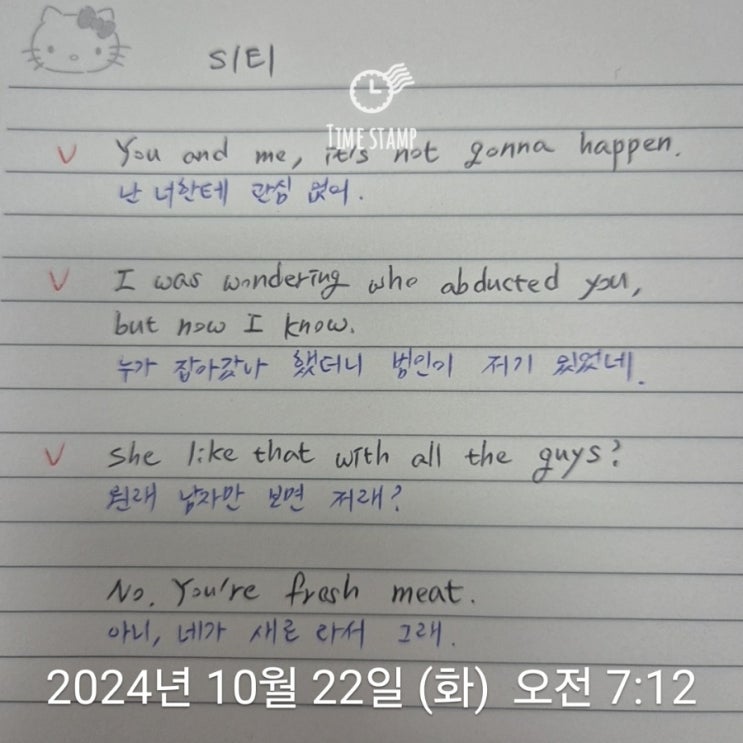 S1E1
TIME STAMP
V You and me, it's not gonna happen.
난 너한테 관심 없어.
V I was wondering who abducted you,
but now I know.
누가 잡아갔나 했더니 범인이 저기 있었네.
V She like that with all the guys?
원래 남자만 보면 저래?
No. You're fresh meat.
아니, 네가 새로 와서 그래.
2024년 10월 22일 (화) 오전 7:12